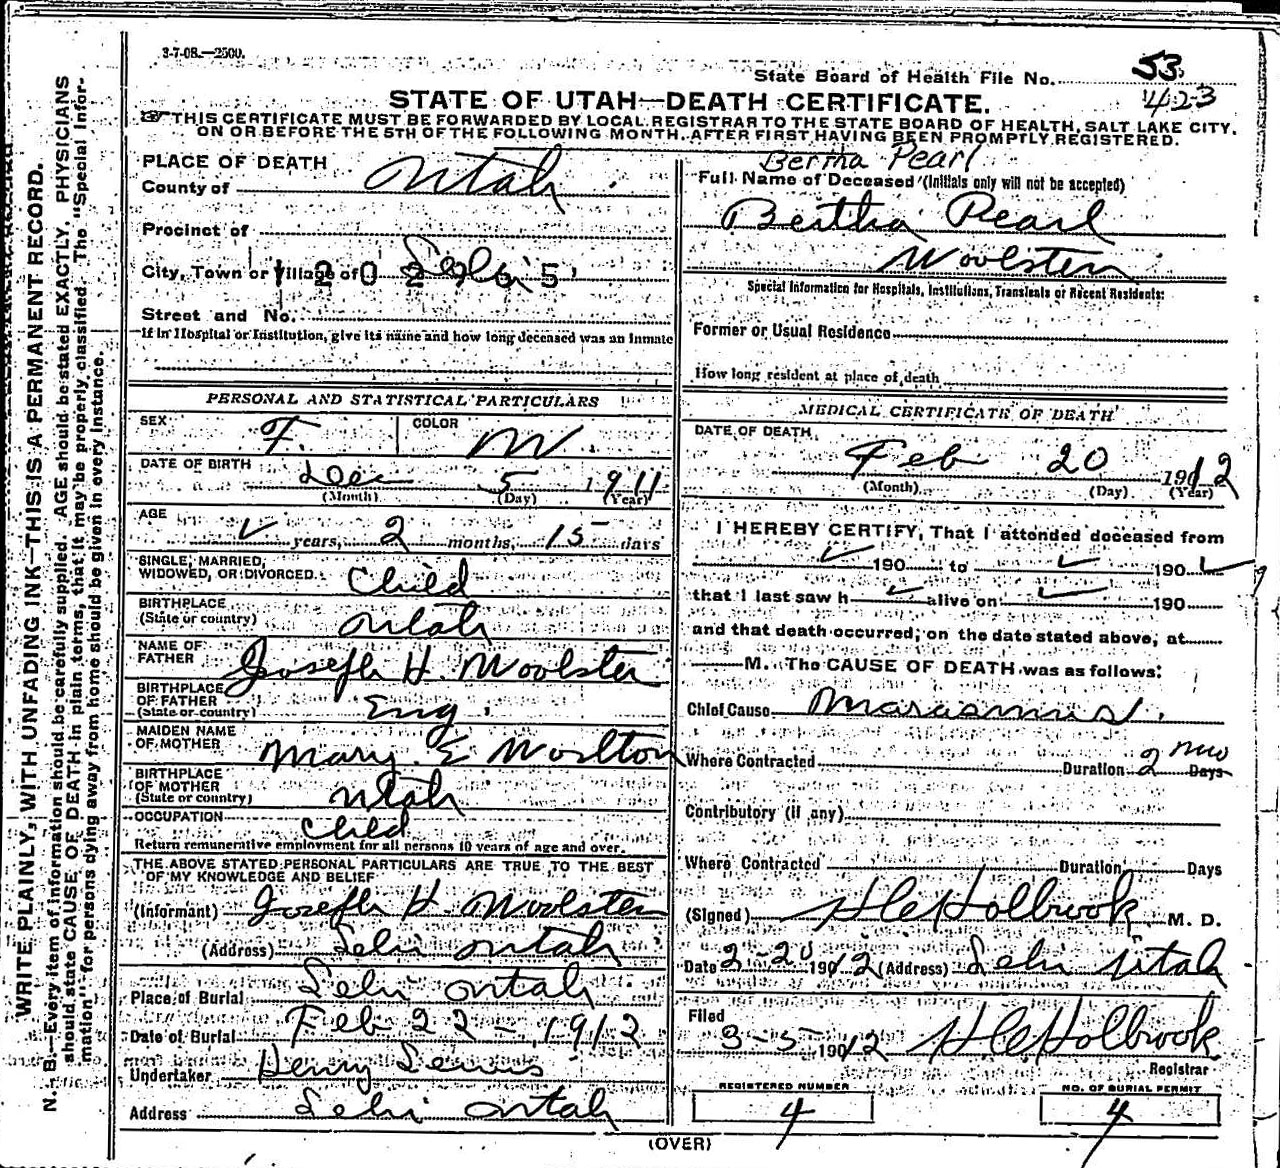 3-7-08.—2500.
State Board of Health File No. 53
423
STATE OF UTAH—DEATH CERTIFICATE.
THIS CERTIFICATE MUST BE FORWARDED BY LOCAL REGISTRAR TO THE STATE BOARD OF HEALTH, SALT LAKE CITY,
ON OR BEFORE THE 5TH OF THE FOLLOWING MONTH, AFTER FIRST HAVING BEEN PROMPTLY REGISTERED.
WRITE PLAINLY, WITH UNFADING INK—THIS IS A PERMANENT RECORD.
N. B.—Every item of information should be carefully supplied. AGE should be stated EXACTLY. PHYSICIANS
should state CAUSE OF DEATH in plain terms, that it may be properly classified. The "Special Infor-
mation" for persons dying away from home should be given in every instance.
PLACE OF DEATH
County of Utah
Precinct of
City, Town or Village of Lehi
Street and No.
If in Hospital or Institution, give its name and how long deceased was an Inmate
PERSONAL AND STATISTICAL PARTICULARS
SEX F. COLOR W.
DATE OF BIRTH Dec 5 1911
(Month) (Day) (Year)
AGE ✓ years, 2 months, 15 days
SINGLE, MARRIED,
WIDOWED, OR DIVORCED. Child
BIRTHPLACE
(State or country) Utah
NAME OF
FATHER Joseph H. Woolsten
BIRTHPLACE
OF FATHER
(State or country) Eng.
MAIDEN NAME
OF MOTHER Mary E
BIRTHPLACE
OF MOTHER
(State or country) Utah
OCCUPATION Child
Return remunerative employment for all persons 10 years of age and over.
THE ABOVE STATED PERSONAL PARTICULARS ARE TRUE TO THE BEST
OF MY KNOWLEDGE AND BELIEF
(Informant) Joseph H. Woolsten
(Address) Lehi Utah
Place of Burial Lehi Utah
Date of Burial Feb 22 - 1912
Undertaker Henry Lewis
Address Lehi Utah
Bertha Pearl
Full Name of Deceased (Initials only will not be accepted)
Bertha Pearl
Woolsten
Special Information for Hospitals, Institutions, Transients or Recent Residents:
Former or Usual Residence
How long resident at place of death
MEDICAL CERTIFICATE OF DEATH
DATE OF DEATH
Feb 20 1912
(Month) (Day) (Year)
I HEREBY CERTIFY, That I attended deceased from
✓ 190 to ✓ 190 ✓
that I last saw h ✓ alive on ✓ 190
and that death occurred, on the date stated above, at
M. The CAUSE OF DEATH was as follows:
Chief Cause Marasmus.
Where Contracted Duration 2 mo Days
Contributory (if any)
Where Contracted Duration Days
(Signed) Holbrook M. D.
Date 2-20 1912 (Address) Lehi Utah
Filed
3-5- 1912 Holbrook
Registrar
REGISTERED NUMBER NO. OF BURIAL PERMIT
4 4
(OVER)